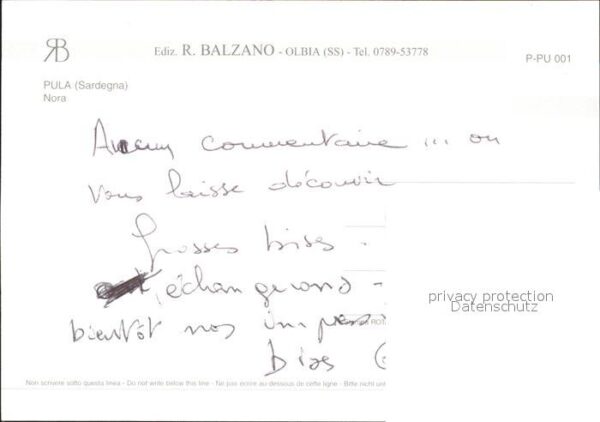 RB
Ediz. R. BALZANO - OLBIA (SS) - Tel. 0789-53778
P-PU 001
PULA (Sardegna)
Nora
Aucun commentaire ... on
vous laisse découvrir
Grosses bises.
échangerons -
bientôt nos impress
bises
privacy protection
Datenschutz
Non scrivere sotto questa linea - Do not write below this line - Ne pas ecrire au-dessous de cette ligne - Bitte nicht unt